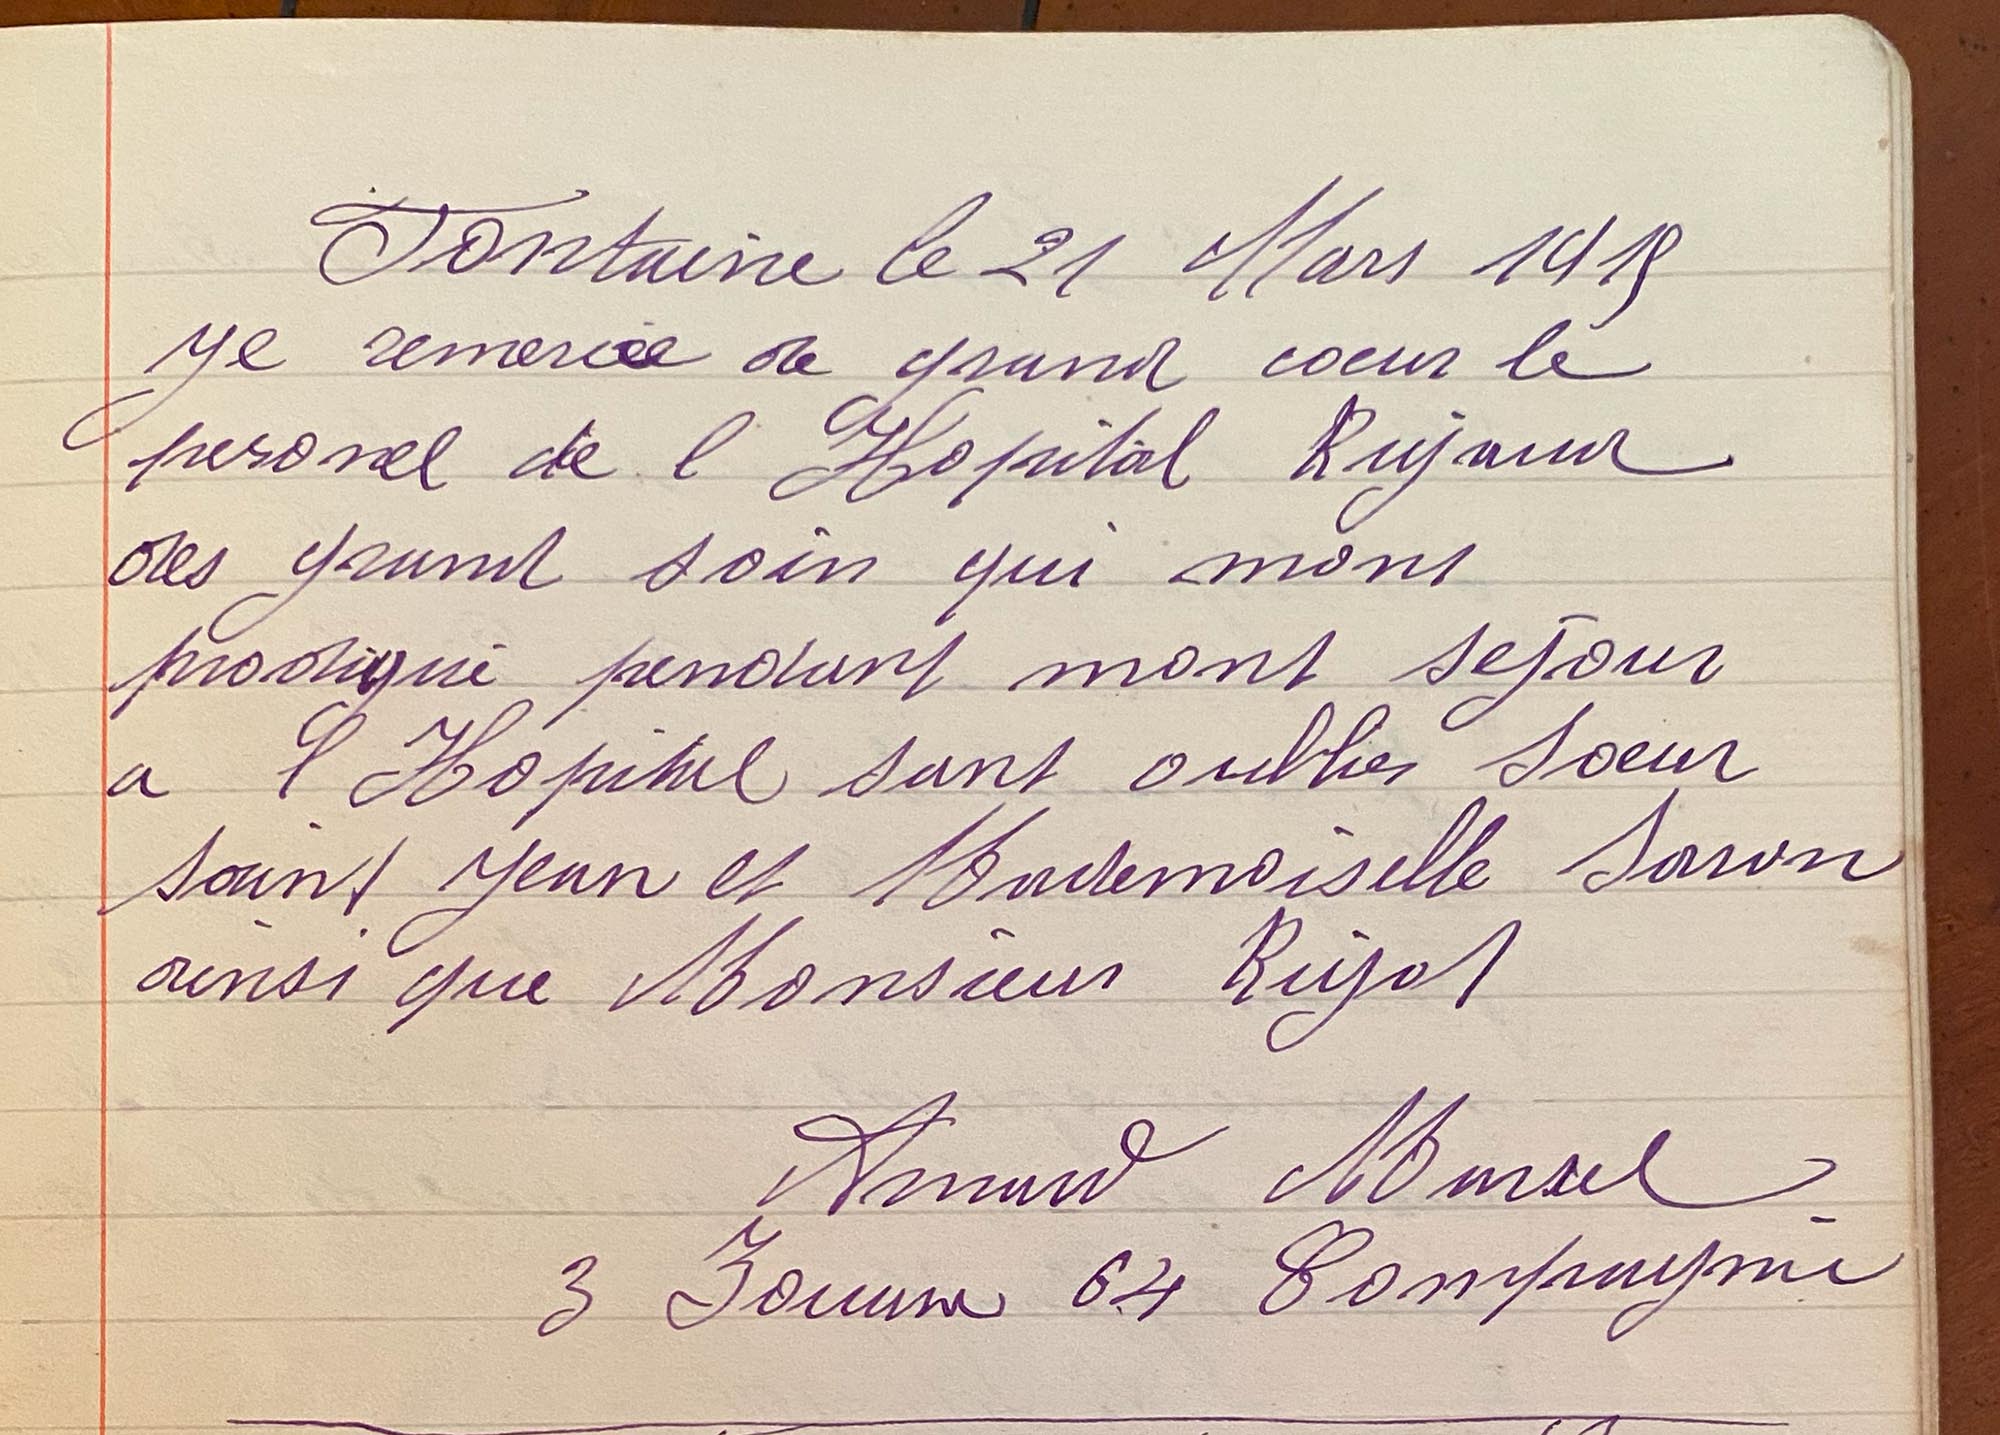 Fontaine le 21 Mars 1915
Je remercie de grand coeur le
personel de l Hopital Rujaud
des grand soin qui mont
prodigué pendant mont sejour
a l Hopital sant oublier Soeur
saint Jean et Mademoiselle Saron
ainsi que Monsieur Rujol
Arnaud Marsel
3 Zouave 64 Compagnie